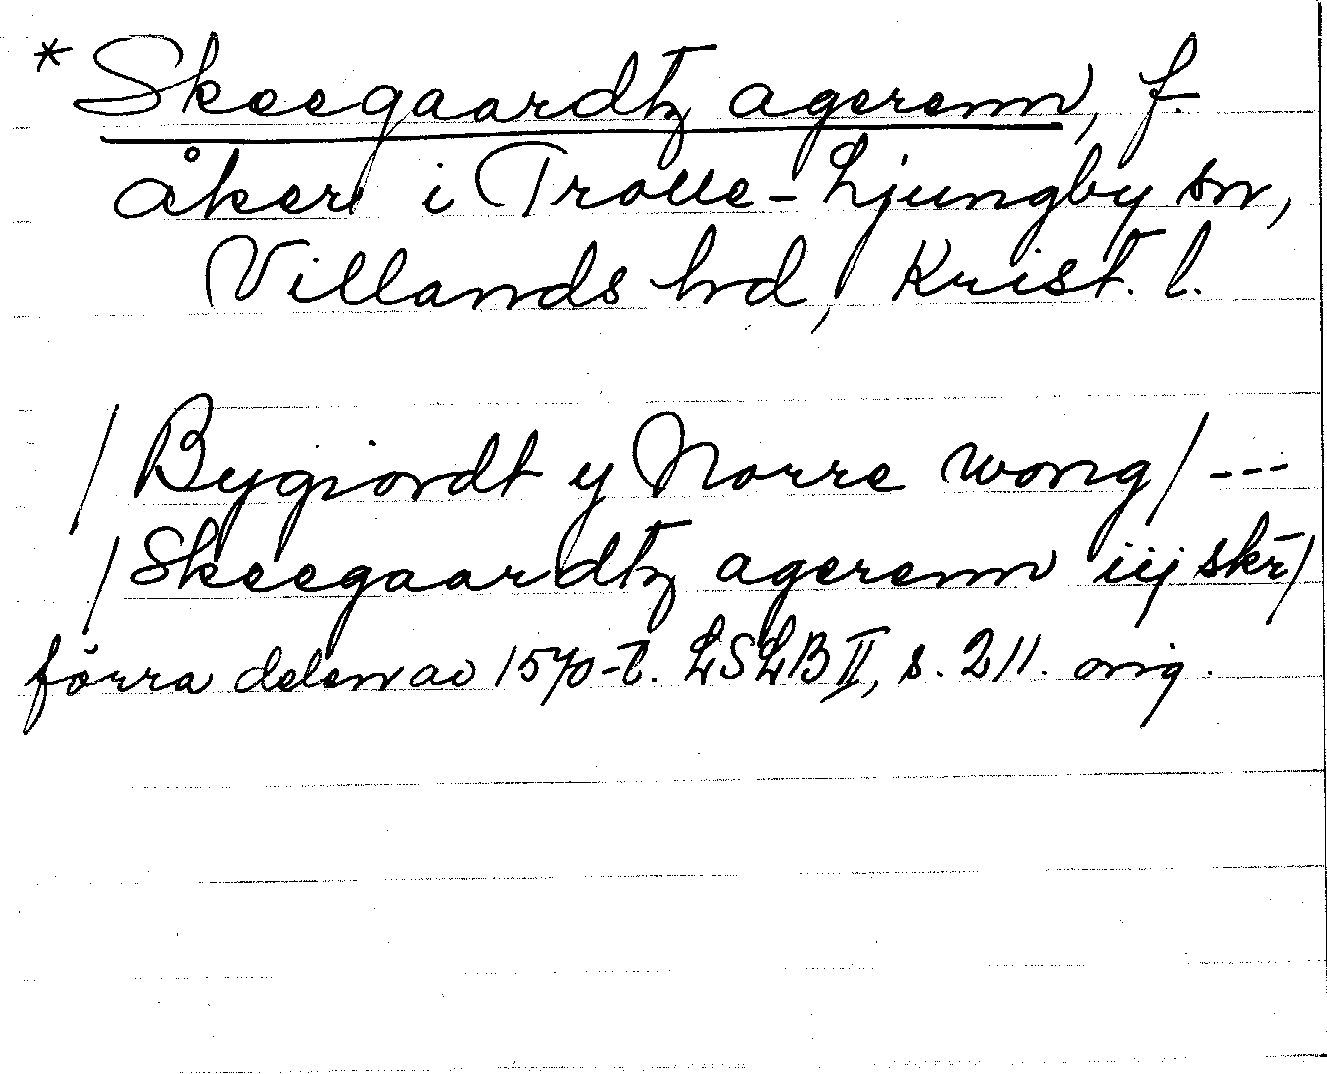 * Skeegaardtz agerenn, f.
åker i Trolle-Ljungby sn,
Villands hd, Krist. l.
/Bygiordt y Norre wong/ ---
/Skeegaardtz agerenn iij skr/
förra delen av 1570-t. LSLB II, s. 211. orig.